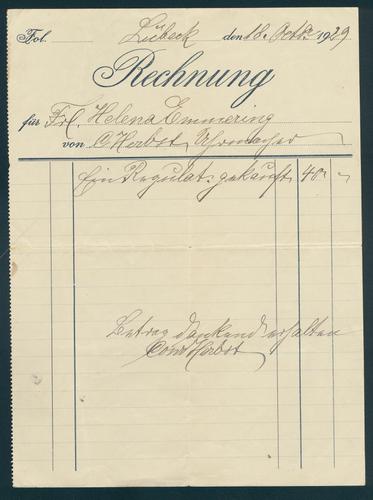 Fol. Lübeck den 18. Octbr. 1929
Rechnung
für Frl. Helena Emmering
von C Herbst Uhrmacher
Ein Regulat. gekauft 40 –
Betrag dankend erhalten
Conr Herbst